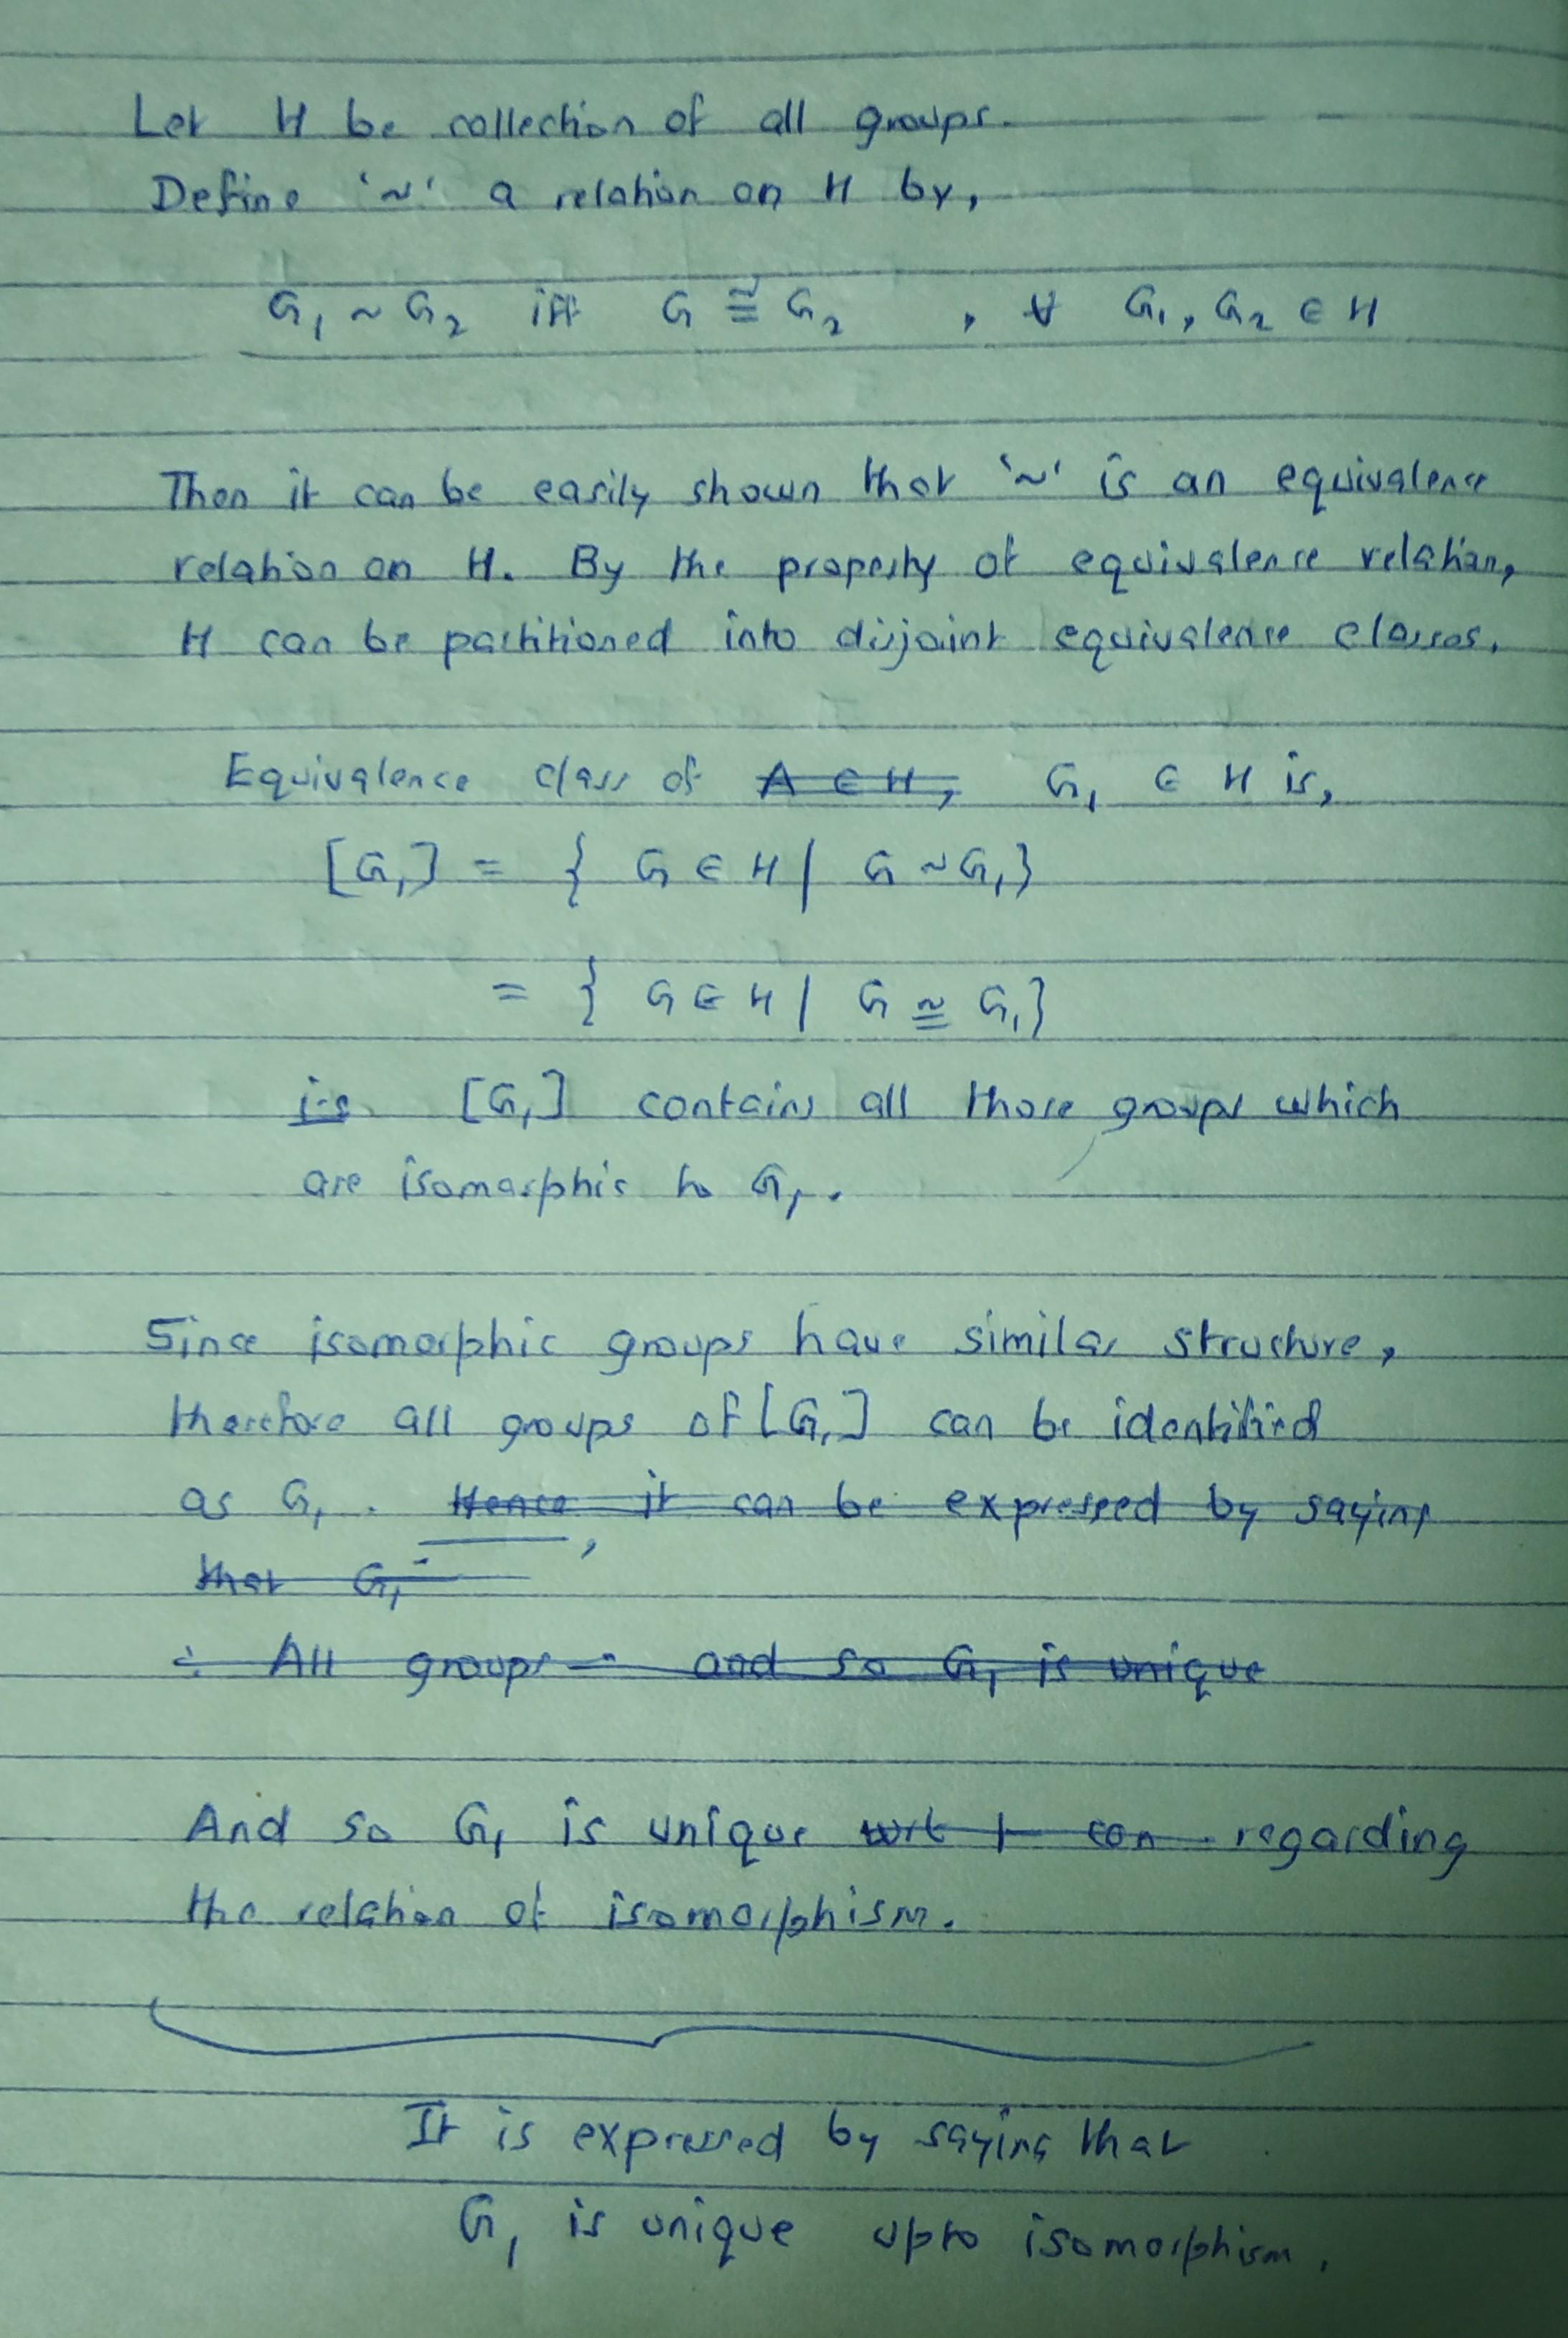 Let H be collection of all groups.
Define '~' a relation on H by,
G₁ ~ G₂ iff G ≅ G₂ , ∀ G₁, G₂ ∈ H
Then it can be easily shown that '~' is an equivalence
relation on H. By the property of equivalence relation,
H can be partitioned into disjoint equivalence classes.
Equivalence class of A ∈ H, G₁ ∈ H is,
[G₁] = { G ∈ H | G ~ G₁}
= { G ∈ H | G ≅ G₁}
i.e. [G₁] contains all those groups which
are isomorphic to G₁.
Since isomorphic groups have similar structure,
therefore all groups of [G₁] can be identified
as G₁. Hence it can be expressed by saying
that G₁
∴ All groups and so G₁ is unique
And so G₁ is unique wrt con regarding
the relation of isomorphism.
It is expressed by saying that
G₁ is unique upto isomorphism.